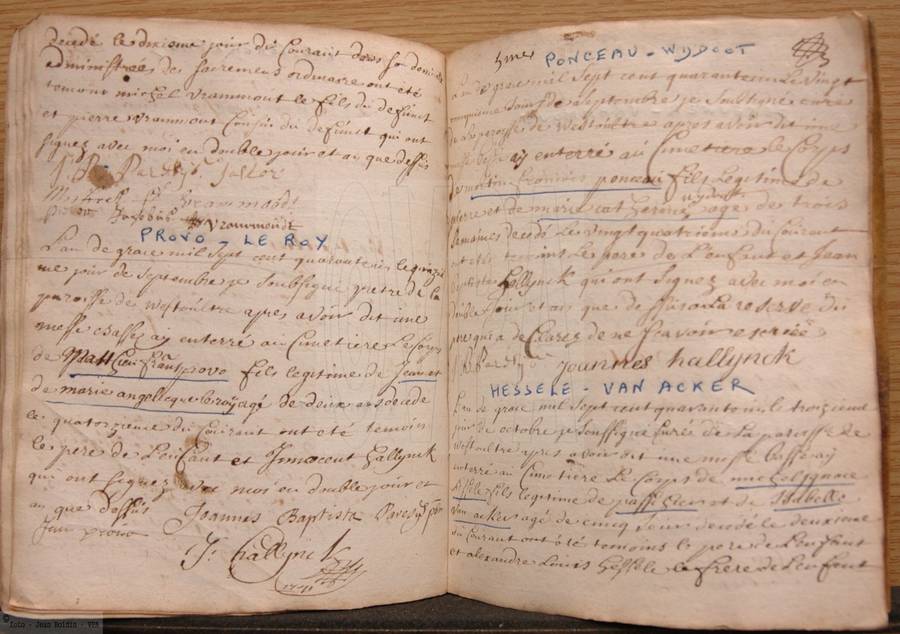 decedé le dixieme jour du Courant dans son domi
administrée des sacremens ordinaire ont eté
temoins michel vrammont le fils du defunct
et pierre vrammont Cousin du defunct qui ont
signez avec moi en double jour et an que dessus
pastor
vrammondt
PROVO - LE ROY
L'an de grace mil sept cent quarante six le quinzi
me jour de Septembre je soubsigné pretre de la
paroisse de westoutre apres avoir dit une
messe basse ay enterré au Cimetiere le Corps
de Matthieu frans provo fils legitime de Jean et
de marie angelleque le roy agé de deux ans decede
le quatorzieme du Courant ont eté temoin
le pere de L'enfant et Innocent hallynck
qui ont signez avec moi en double jour et
an que dessus Joannes Baptista
Jan provo
J: hallynck
PONCEAU - WYDOOT
L'an de grace mil sept cent quarante six Le vingt
cinquieme jour de Septembre je soubsigné curé
de la paroisse de westoutre apres avoir dit une
messe basse ay enterré au Cimetiere le Corps
de martin ponceau fils Legitime de
wydoot
pierre et de marie cat herine agé de trois
semaines decedé Le vingt quatrieme du Courant
ont eté temoins Le pere de L'enfant et Jean
baptiste hallynck qui ont signez avec moi en
double jour et an que dessus a La reserve du
pere qui a declarez de ne scavoir escrire
joannes hallynck
HESSELE - VAN ACKER
L'an de grace mil sept cent quarante six le troizieme
jour de octobre je soussigné Curés de La paroisse de
westoutre apres avoir dit une messe basse ay
enterré au Cimetiere Le Corps de michel ignace
fils legitime de et de Isabelle
van acker agé de cinq jours decedé le deuxieme
du Courant ont eté temoins le pere de L'enfant
et alexandre Louis hessele le frere de L'enfant
Foto - Jean Roldin - VPA